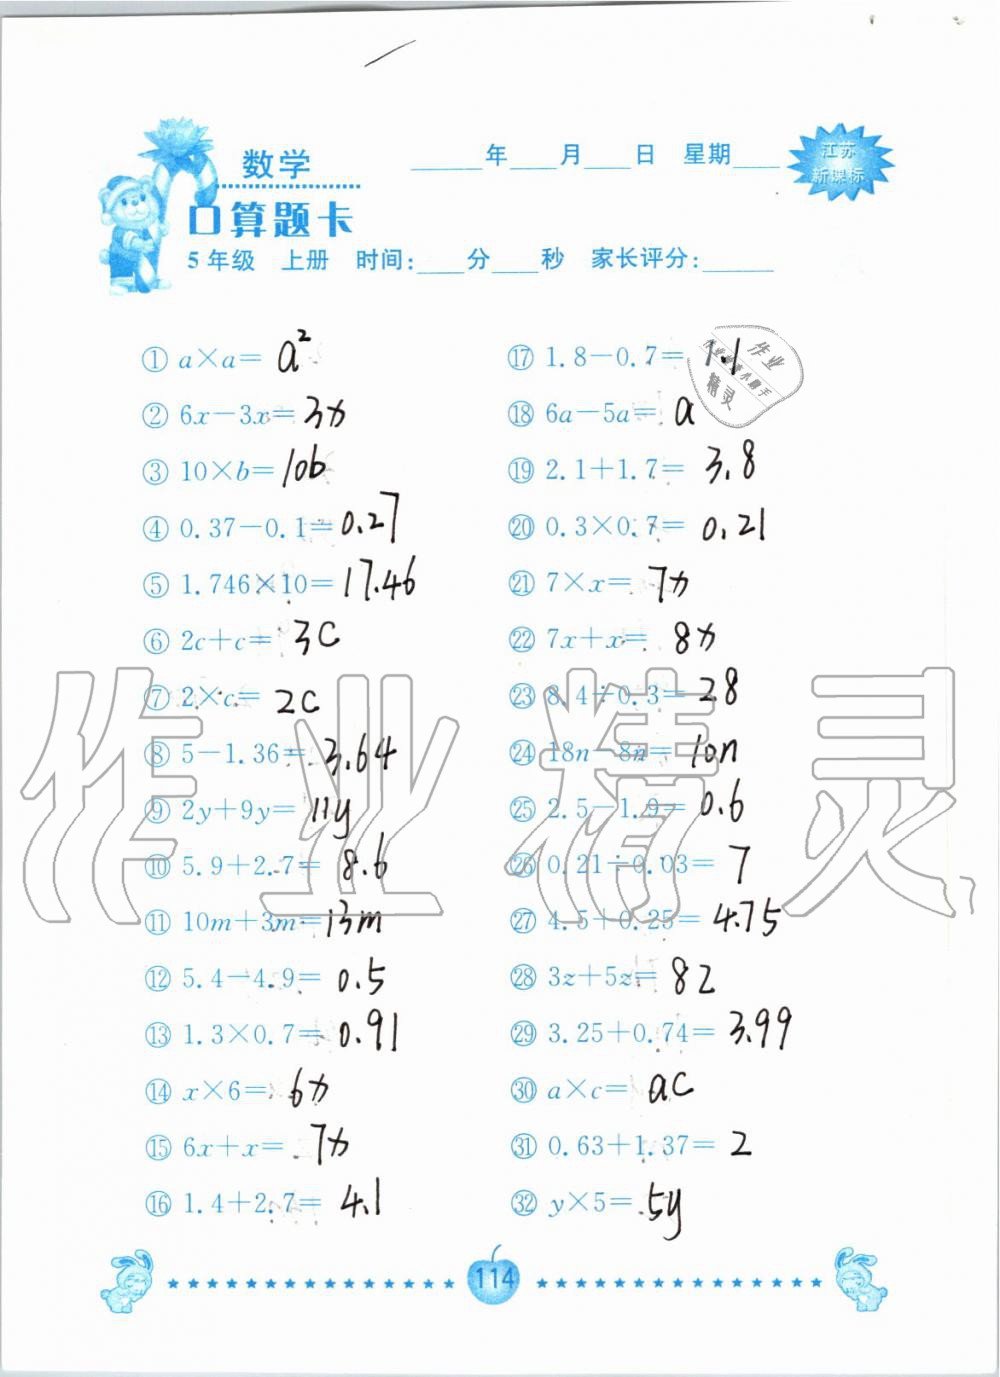 数学
____年____月____日 星期____
江苏
新课标
口算题卡
5年级 上册 时间:____分____秒 家长评分:____
① a×a= a²
② 6x-3x= 3x
③ 10×b= 10b
④ 0.37-0.1= 0.27
⑤ 1.746×10= 17.46
⑥ 2c+c= 3c
⑦ 2×c= 2c
⑧ 5-1.36= 3.64
⑨ 2y+9y= 11y
⑩ 5.9+2.7= 8.6
⑪ 10m+3m= 13m
⑫ 5.4-4.9= 0.5
⑬ 1.3×0.7= 0.91
⑭ x×6= 6x
⑮ 6x+x= 7x
⑯ 1.4+2.7= 4.1
⑰ 1.8-0.7= 1.1
⑱ 6a-5a= a
⑲ 2.1+1.7= 3.8
⑳ 0.3×0.7= 0.21
㉑ 7×x= 7x
㉒ 7x+x= 8x
㉓ 8.4÷0.3= 28
㉔ 18n-8n= 10n
㉕ 2.5-1.9= 0.6
㉖ 0.21÷0.03= 7
㉗ 4.5+0.25= 4.75
㉘ 3z+5z= 8z
㉙ 3.25+0.74= 3.99
㉚ a×c= ac
㉛ 0.63+1.37= 2
㉜ y×5= 5y
作业
精灵
作业精灵
114